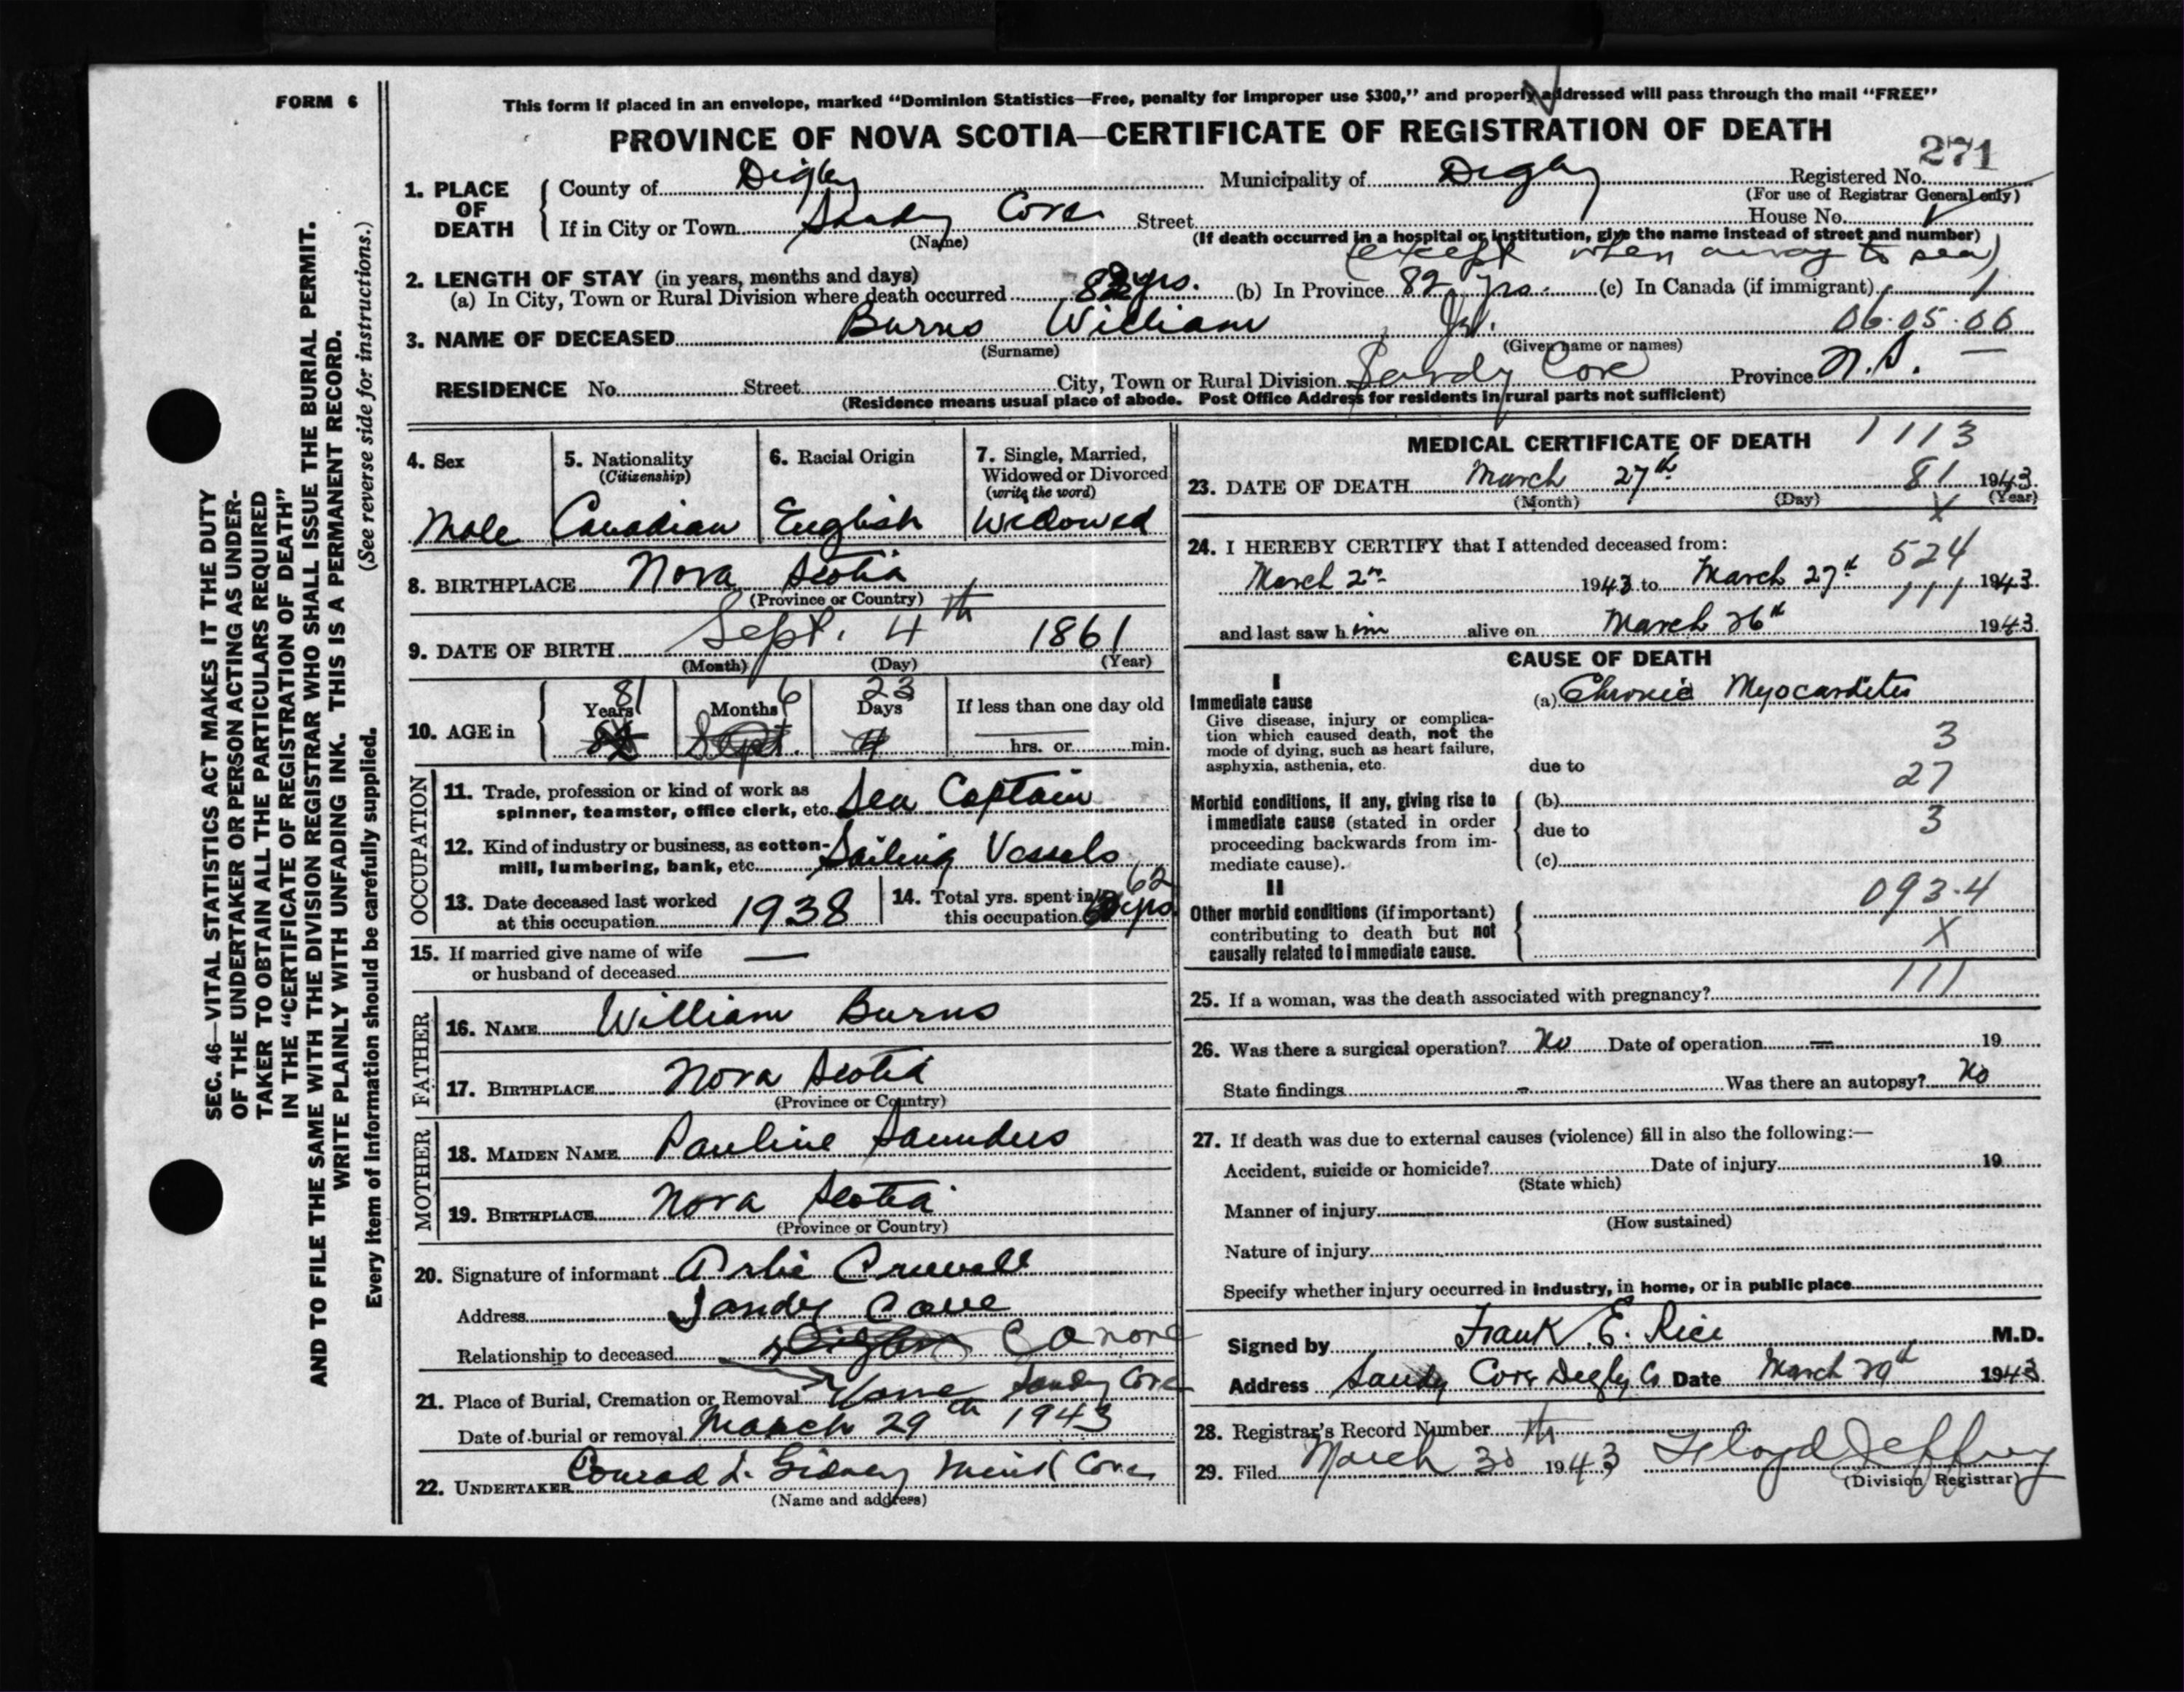 FORM 6
This form if placed in an envelope, marked "Dominion Statistics—Free, penalty for improper use $300," and properly addressed will pass through the mail "FREE"
PROVINCE OF NOVA SCOTIA—CERTIFICATE OF REGISTRATION OF DEATH
271
1. PLACE OF DEATH
County of Digby Municipality of Digby Registered No.
(For use of Registrar General only)
If in City or Town Sandy Cove Street House No.
(Name) (If death occurred in a hospital or institution, give the name instead of street and number)
(except when away to sea)
2. LENGTH OF STAY (in years, months and days)
(a) In City, Town or Rural Division where death occurred 82 yrs. (b) In Province 82 yrs. (c) In Canada (if immigrant)
3. NAME OF DECEASED Burns William Jr. 06.05.06
(Surname) (Given name or names)
RESIDENCE No. Street City, Town or Rural Division Sandy Cove Province N.S.
(Residence means usual place of abode. Post Office Address for residents in rural parts not sufficient)
4. Sex
Male
5. Nationality
(Citizenship)
Canadian
6. Racial Origin
English
7. Single, Married, Widowed or Divorced
(write the word)
Widowed
8. BIRTHPLACE Nova Scotia
(Province or Country)
9. DATE OF BIRTH Sept. 4th 1861
(Month) (Day) (Year)
10. AGE in
81 6 23
Years Months Days If less than one day old
Sept. 4 hrs. or min.
OCCUPATION
11. Trade, profession or kind of work as
spinner, teamster, office clerk, etc. Sea Captain
12. Kind of industry or business, as cotton-
mill, lumbering, bank, etc. Sailing Vessels
13. Date deceased last worked
at this occupation 1938
14. Total yrs. spent in
this occupation 62 yrs
15. If married give name of wife
or husband of deceased —
FATHER
16. NAME William Burns
17. BIRTHPLACE Nova Scotia
(Province or Country)
MOTHER
18. MAIDEN NAME Pauline Saunders
19. BIRTHPLACE Nova Scotia
(Province or Country)
20. Signature of informant
Address Sandy Cove
Relationship to deceased none
21. Place of Burial, Cremation or Removal Sandy Cove
Date of burial or removal March 29th 1943
22. UNDERTAKER Conrad L. Gidney Mink Cove
(Name and address)
MEDICAL CERTIFICATE OF DEATH 1113
23. DATE OF DEATH March 27th 81 1943
(Month) (Day) (Year)
X
24. I HEREBY CERTIFY that I attended deceased from:
524
March 2nd 1943 to March 27th 1943
and last saw him alive on March 26th 1943
CAUSE OF DEATH
I
Immediate cause
Give disease, injury or complica-
tion which caused death, not the
mode of dying, such as heart failure,
asphyxia, asthenia, etc.
(a) Chronic Myocarditis
3
due to
27
Morbid conditions, if any, giving rise to
immediate cause (stated in order
proceeding backwards from im-
mediate cause).
(b)
due to 3
(c)
II
Other morbid conditions (if important)
contributing to death but not
causally related to immediate cause.
093.4
X
111
25. If a woman, was the death associated with pregnancy?
26. Was there a surgical operation? No Date of operation — 19
State findings - Was there an autopsy? No
27. If death was due to external causes (violence) fill in also the following:—
Accident, suicide or homicide? Date of injury 19
(State which)
Manner of injury
(How sustained)
Nature of injury
Specify whether injury occurred in industry, in home, or in public place
Signed by Frank E. Rice M.D.
Address Sandy Cove Digby Co. Date March 29th 1943
28. Registrar's Record Number
29. Filed March 30th 1943 Floyd Jeffrey
(Division Registrar)
SEC. 46—VITAL STATISTICS ACT MAKES IT THE DUTY
OF THE UNDERTAKER OR PERSON ACTING AS UNDER-
TAKER TO OBTAIN ALL THE PARTICULARS REQUIRED
IN THE "CERTIFICATE OF REGISTRATION OF DEATH"
AND TO FILE THE SAME WITH THE DIVISION REGISTRAR WHO SHALL ISSUE THE BURIAL PERMIT.
WRITE PLAINLY WITH UNFADING INK. THIS IS A PERMANENT RECORD.
Every item of information should be carefully supplied. (See reverse side for instructions.)